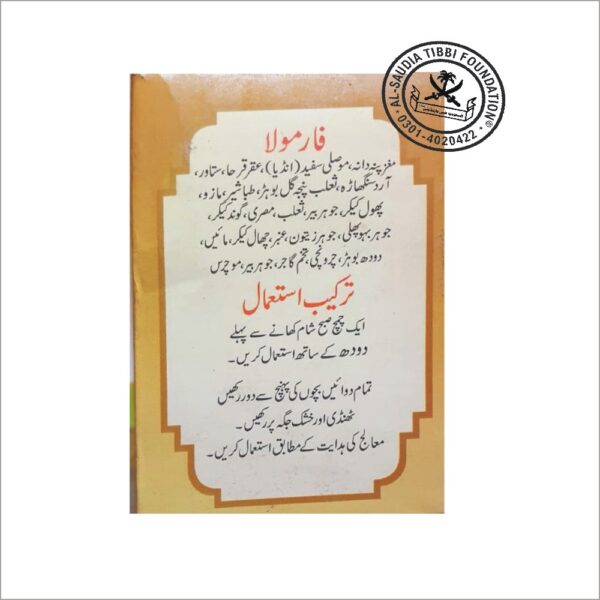 AL-SAUDIA TIBBI FOUNDATION®
0301-4020422
فارمولا
مغز پنبہ دانہ، موصلی سفید (انڈیا)، عقرقرحا، ستاور،
آرد سنگھاڑہ، ثعلب پنجہ گل بوہڑ، طباشیر، مازو،
پھول کیکر، جوہر بیر، ثعلب، مصری، گوند کیکر،
جوہر بہوپھلی، جوہر زیتون، عنبر، چھال کیکر، مائیں،
دودھ بوہڑ، چرونجی، تخم گاجر، جوہر بیر، موچرس
ترکیب استعمال
ایک چمچ صبح شام کھانے سے پہلے
دودھ کے ساتھ استعمال کریں۔
تمام دوائیں بچوں کی پہنچ سے دور رکھیں
ٹھنڈی اور خشک جگہ پر رکھیں۔
معالج کی ہدایت کے مطابق استعمال کریں۔